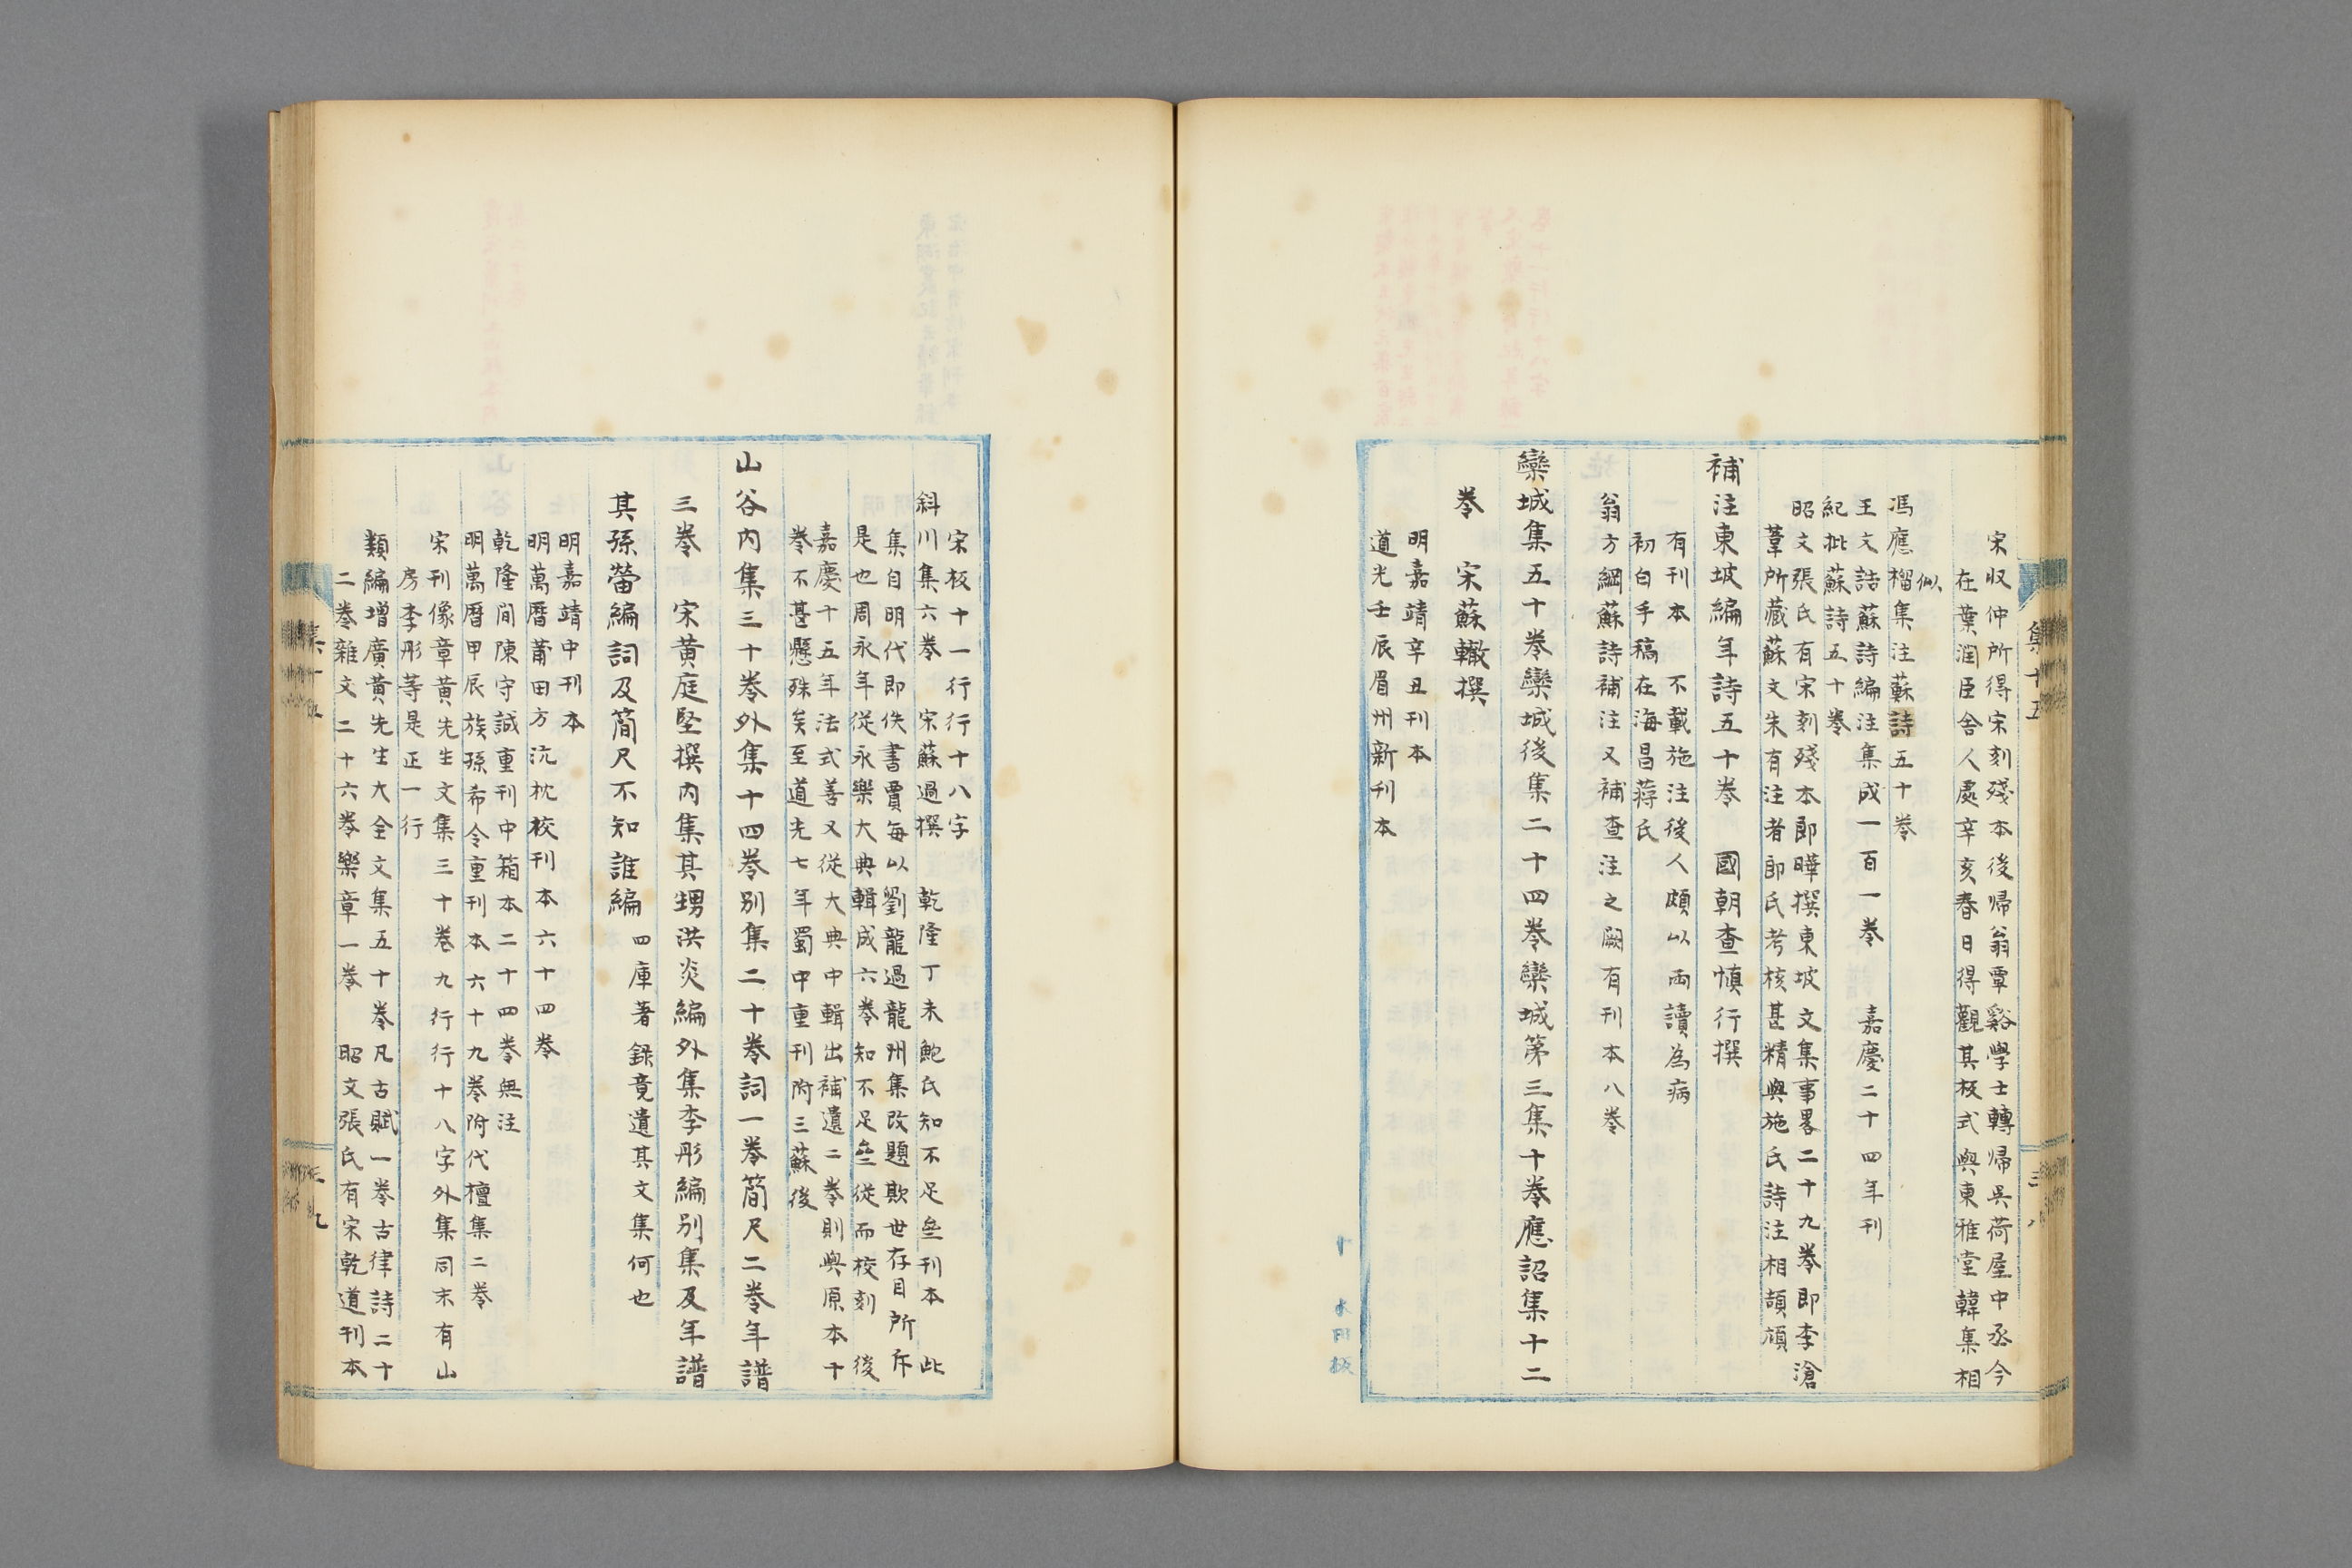 宋収仲所得宋刻殘本後帰翁覃谿學士轉帰呉荷屋中丞今
在葉潤臣舍人處辛亥春日得觀其板式與東雅堂韓集相
似
馮應榴集注蘇詩五十巻
王文誥蘇詩編注集成一百一巻 嘉慶二十四年刊
紀批蘇詩五十巻
昭文張氏有宋刻殘本郎曄撰東坡文集事畧二十九巻即李滄
葦所藏蘇文朱有注者郎氏考核甚精與施氏詩注相頡頏
補注東坡編年詩五十巻 國朝查慎行撰
有刊本 不載施注後人頗以両讀為病
初白手稿在海昌蒋氏
翁方綱蘇詩補注又補查注之闕有刊本八巻
欒城集五十巻欒城後集二十四巻欒城第三集十巻應詔集十二
巻 宋蘇轍撰
明嘉靖辛丑刊本
道光壬辰眉州新刊本
集十五
三八
宋板十一行行十八字
斜川集六巻 宋蘇過撰 乾隆丁未鮑氏知不足叁刊本 此
集自明代即佚書賈每以劉龍過龍州集改題欺世存目所斥
是也周永年従永樂大典輯成六巻知不足叁従而校刻 後
嘉慶十五年法式善又従大典中輯出補遺二巻則與原本十
巻不甚懸殊矣至道光七年蜀中重刊附三蘇後
山谷内集三十巻外集十四巻別集二十巻詞一巻簡尺二巻年譜
三巻 宋黄庭堅撰内集其甥洪炎編外集李彤編別集及年譜
其孫㽦編詞及簡尺不知誰編 四庫著録竟遺其文集何也
明嘉靖中刊本
明萬曆莆田方沆枕校刊本六十四巻
乾隆間陳守誠重刊中箱本二十四巻無注
明萬曆甲辰族孫希令重刊本六十九巻附代檀集二巻
宋刊像章黄先生文集三十巻九行行十八字外集同末有山
房李彤等是正一行
類編增廣黄先生大全文集五十巻凡古賦一巻古律詩二十
二巻雜文二十六巻樂章一巻 昭文張氏有宋乾道刊本